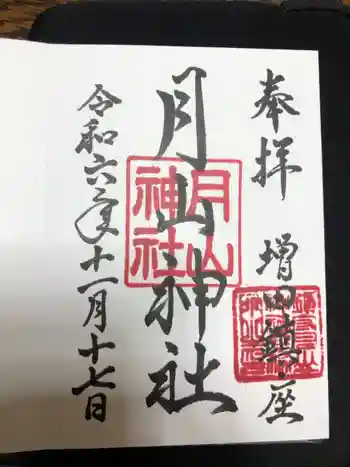 奉拝 増田鎮座
月山神社
月山神社
令和六年十一月十七日